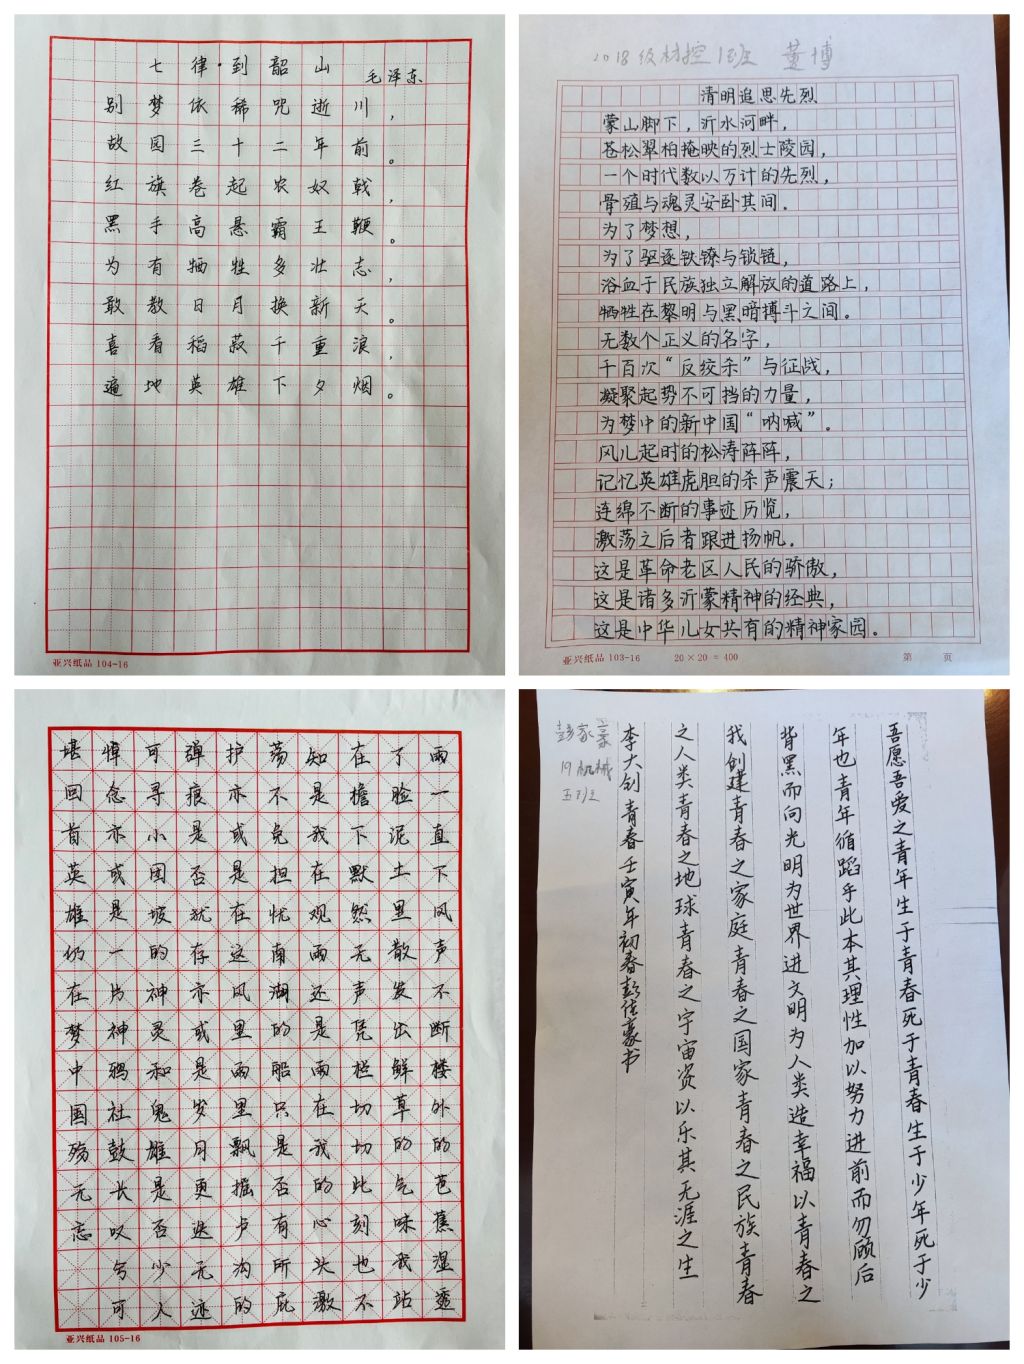 七律·到韶山
毛泽东
别梦依稀咒逝川,
故园三十二年前。
红旗卷起农奴戟,
黑手高悬霸王鞭。
为有牺牲多壮志,
敢教日月换新天。
喜看稻菽千重浪,
遍地英雄下夕烟。
亚兴纸品 104-16
2018级材控1班 董博
清明追思先烈
蒙山脚下,沂水河畔,
苍松翠柏掩映的烈士陵园,
一个时代数以万计的先烈,
骨殖与魂灵安卧其间。
为了梦想,
为了驱逐铁镣与锁链,
浴血于民族独立解放的道路上,
牺牲在黎明与黑暗搏斗之间。
无数个正义的名字,
千百次“反绞杀”与征战,
凝聚起势不可挡的力量,
为梦中的新中国“呐喊”。
风儿起时的松涛阵阵,
记忆英雄虎胆的杀声震天;
连绵不断的事迹历览,
激荡之后者跟进扬帆.
这是革命老区人民的骄傲,
这是诸多沂蒙精神的经典,
这是中华儿女共有的精神家园。
亚兴纸品 103-16 20×20=400 第 页
雨一直下风声不断楼外的芭蕉湿透
了脸泥土里散发出鲜草的气味我站
在檐下默然无声凭栏切切此刻也不
知是我在观雨还是雨在我的心头激
荡不免担忧南湖的船只是否有所庇
护亦或是在这风里雨里飘摇卢沟的
弹痕是否犹存亦或是岁月更迭无迹
可寻小围坡的神灵和鬼雄是否少人
悼念亦或是一片神鸦社鼓长叹兮可
堪回首英雄仍在梦中国殇无忘
亚兴纸品 105-16
吾愿吾爱之青年生于青春死于青春生于少年死于少
年也青年循蹈乎此本其理性加以努力进前而勿顾后
背黑而向光明为世界进文明为人类造幸福以青春之
我创建青春之家庭青春之国家青春之民族青春
之人类青春之地球青春之宇宙资以乐其无涯之生
李大钊青春壬寅年初春彭佳豪书
彭家豪
19机械
五班